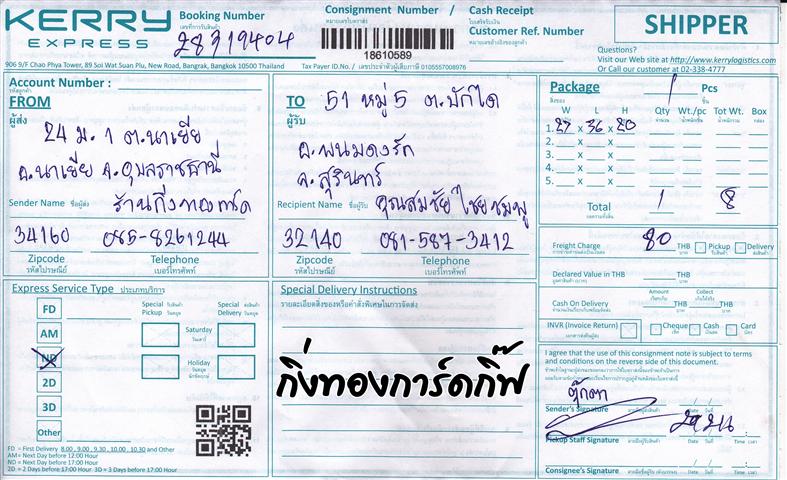 KERRY
EXPRESS
Booking Number
เลขที่การรับสินค้า
28319404
Consignment Number /
หมายเลขใบตราส่ง
18610589
Cash Receipt
ใบเสร็จรับเงิน
Customer Ref. Number
หมายเลขอ้างอิงของลูกค้า
SHIPPER
Questions?
Visit our Web site at http://www.kerrylogistics.com
Or Call our customer at 02-338-4777
906 9/F Chao Phya Tower, 89 Soi Wat Suan Plu, New Road, Bangrak, Bangkok 10500 Thailand
Tax Payer ID.No. / เลขประจำตัวผู้เสียภาษี 0105557008976
Account Number :
รหัสลูกค้า
FROM
ผู้ส่ง
24 ม. 1 ต.นาเยีย
อ.นาเยีย จ.อุบลราชธานี
Sender Name ชื่อผู้ส่ง
34160 085-8261244
Zipcode Telephone
รหัสไปรษณีย์ เบอร์โทรศัพท์
TO
ผู้รับ
51 หมู่ 5 ต.บักได
อ.พนมดงรัก
จ.สุรินทร์
Recipient Name ชื่อผู้รับ คุณสมชัย ไชยชมพู
32140 081-587-3412
Zipcode Telephone
รหัสไปรษณีย์ เบอร์โทรศัพท์
Package 1 Pcs
สิ่งของ ชิ้น
W L H Qty Wt./pc Tot Wt. Box
1. 27 x 36 x 20
2. x x
3. x x
4. x x
5. x x
Total 1 8
Freight Charge 80 THB Pickup Delivery
Declared Value in THB
Amount Collect
Cash On Delivery THB THB
INVR (Invoice Return) Cheque Cash Card
Express Service Type ประเภทบริการ
FD
AM
ND
2D
3D
Other
Special Pickup
Special Delivery
Saturday
วันเสาร์
Holiday
วันหยุด
นักขัตฤกษ์
FD = First Delivery 8.00, 9.00, 9.30, 10.00, 10.30 and Other
AM = Next Day before 12:00 Hour
ND = Next Day before 17:00 Hour
2D = 2 Days before 17:00 Hour. 3D = 3 Days before 17:00 Hour
Special Delivery Instructions
รายละเอียดสิ่งของหรือคำสั่งพิเศษในการจัดส่ง
กิ่งทองการ์ดกิ๊ฟ
I agree that the use of this consignment note is subject to terms
and conditions on the reverse side of this document.
ตุ๊กตา
Sender's Signature Date วันที่
Pickup Staff Signature Date วันที่ Time เวลา
Consignee's Signature Date วันที่ Time เวลา